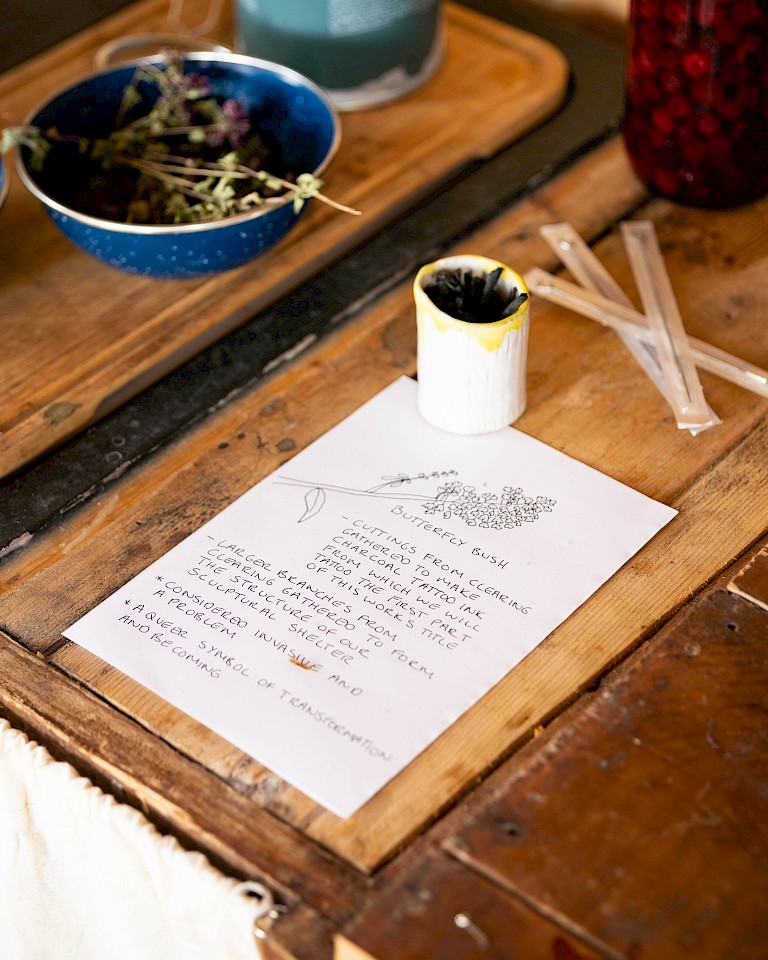 BUTTERFLY BUSH
- CUTTINGS FROM CLEARING
GATHERED TO MAKE
CHARCOAL TATTOO INK
FROM WHICH WE WILL
TATOO THE FIRST PART
OF THIS WORKS TITLE
- LARGER BRANCHES FROM
CLEARING GATHERED TO FORM
THE STRUCTURE OF OUR
SCULPTURAL SHELTER
* CONSIDERED INVASIVE AND
A PROBLEM
* A QUEER SYMBOL OF TRANSFORMATION
AND BECOMING